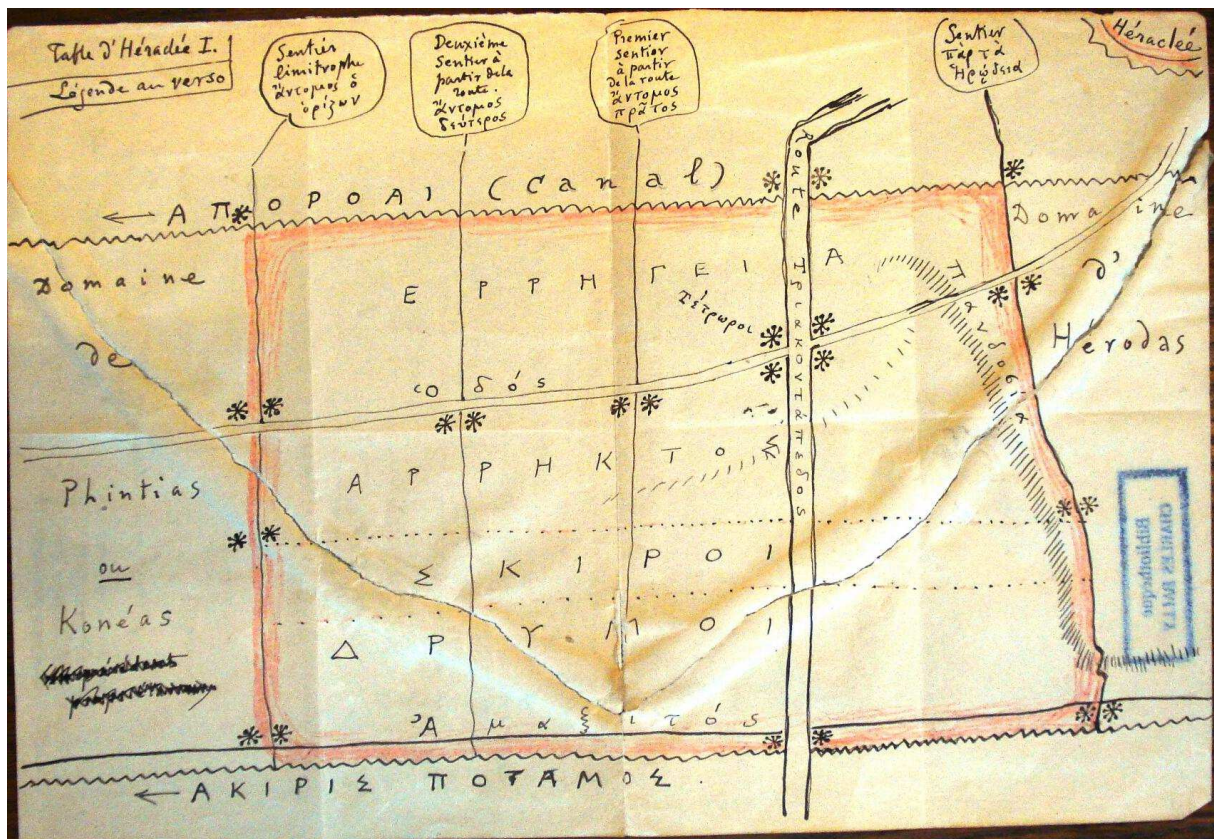 Table d'Héraclée I.
Légende au verso
Sentier
limitrophe
ἄντομος ὁ
ὁρίζων
Deuxième
Sentier à
partir de la
route.
ἄντομος
δεύτερος
Premier
sentier
à partir
de la route
ἄντομος
πρᾶτος
Sentier
πὰρ τὰ
Ἡρώδεια
Héraclée
← ΑΠΟΡΟΑΙ (Canal)
Route Τριακοντάπεδος
Domaine
de
Phintias
ou
Konéas
Domaine
d'
Hérodas
ΕΡΡΗΓΕΙΑ
τέτρωροι
Πανδοσία
ὁδός
ΑΡΡΗΚΤΟΣ
ΣΚΙΡΟΙ
ΔΡΥΜΟΙ
Ἀμαξιτός
← ΑΚΙΡΙΣ ΠΟΤΑΜΟΣ.
Bibliothèque